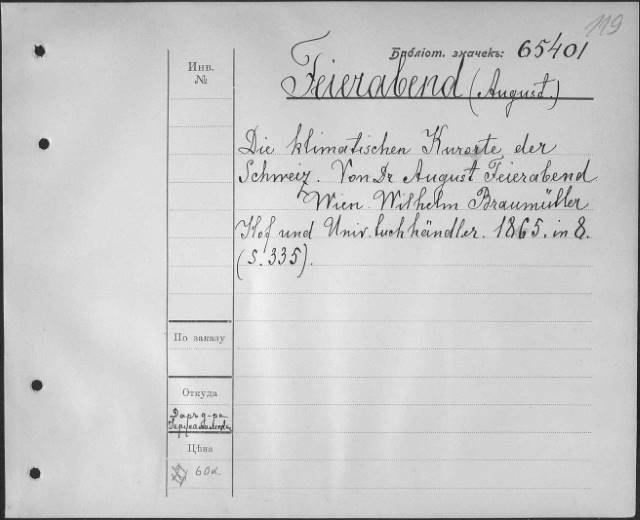 119
Библіот. значекъ: 65401
Инв.
№
Feierabend (August.)
Die klimatischen Kurorte der
Schweiz. Von Dr August Feierabend
Wien. Wilhelm Braumüller
Hof und Univ. buchhändler. 1865. in 8.
(S. 335).
По заказу
Откуда
Даръ д-ра
Цѣна
60к